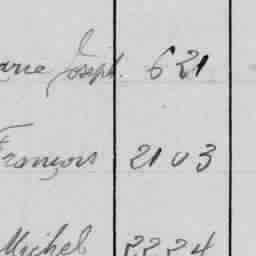 arie Joseph. 621
François 2103
Michel 2224